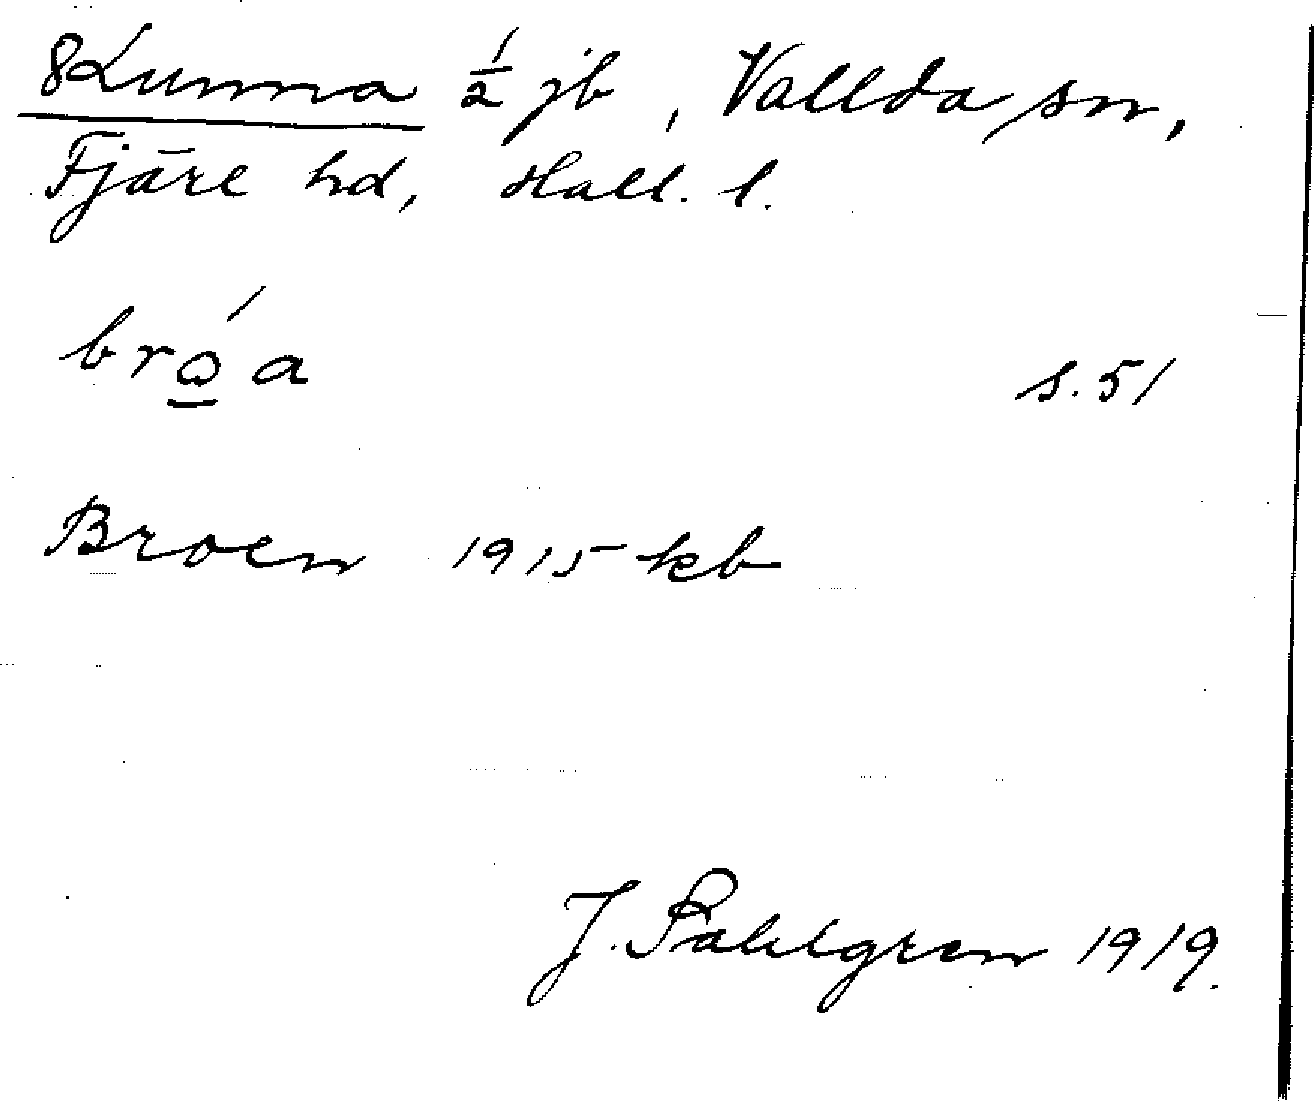 8 Lunna ½ jb, Vallda sn,
Fjäre hd, Hall. l.
bró̲a s. 51
Broen 1915 kb
J. Sahlgren 1919.